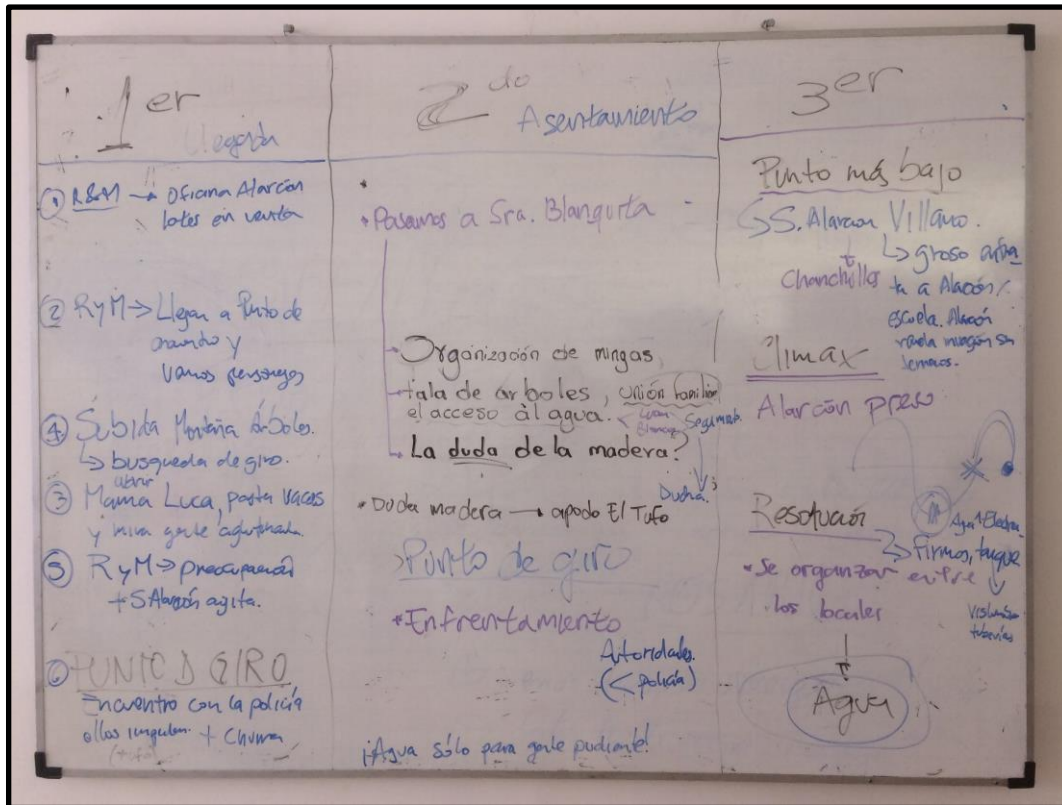 1er
Llegada
① R&M → Oficina Alarcón
lotes en venta
② RyM → Llegan a Punto de
encuentro y
varios personajes
④ Subida Montaña Árboles.
↳ busqueda de giro.
③ Mama Luca, pasta vacas
y mira gente aglutinada
⑤ RyM → preocupación
+ S Alarcón agita.
⑥ PUNTO D GIRO
Encuentro con la policía
ellos + Chuma
2do
Asentamiento
• Pasamos a Sra. Blanquita
Organización de mingas,
tala de arboles, unión familiar
el acceso al agua.
La duda de la madera?
Ducha
• Duda madera → apodo El Tufo
> Punto de giro
• Enfrentamiento
Autoridades.
(< policía)
¡Agua sólo para gente pudiente!
3er
Punto más bajo
↳ S. Alarcon Villano.
Chanchullos
↳ groso enfren
ta a Alarcón /
escuela. Alarcón
Clímax
Alarcón preso
Resolución
Agua + Electri
↳ Firmas, tanque
• Se organizan entre
los locales
tuberías
Agua